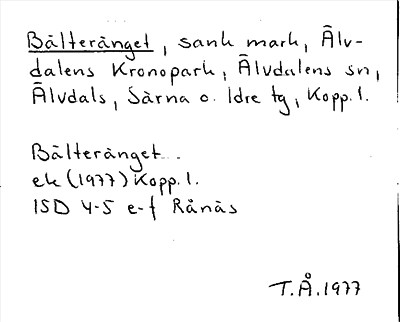 Bälteränget, sank mark, Älv-
dalens Kronopark, Älvdalens sn,
Älvdals, Särna o. Idre tg, Kopp. l.
Bälteränget.
ek (1977) Kopp. l.
ISD 4-5 e-f Rånäs
T.Å. 1977